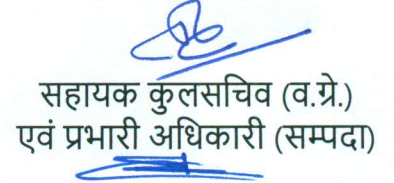 सहायक कुलसचिव (व.ग्रे.)
एवं प्रभारी अधिकारी (सम्पदा)